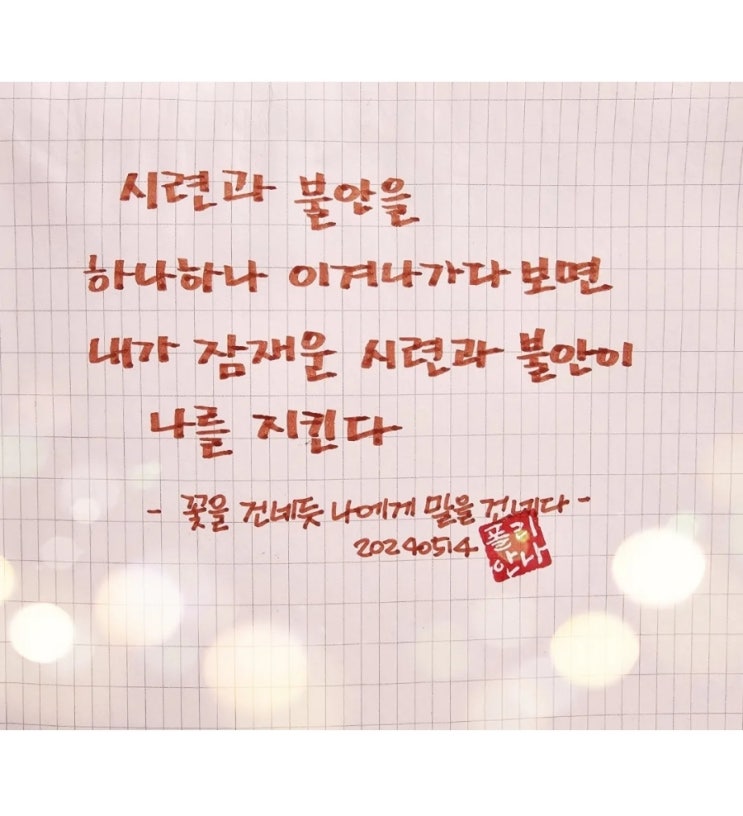 시련과 불안을
하나하나 이겨나가다 보면
내가 잠재운 시련과 불안이
나를 지킨다
- 꽃을 건네듯 나에게 말을 건네다 -
20240514
폴리
안나